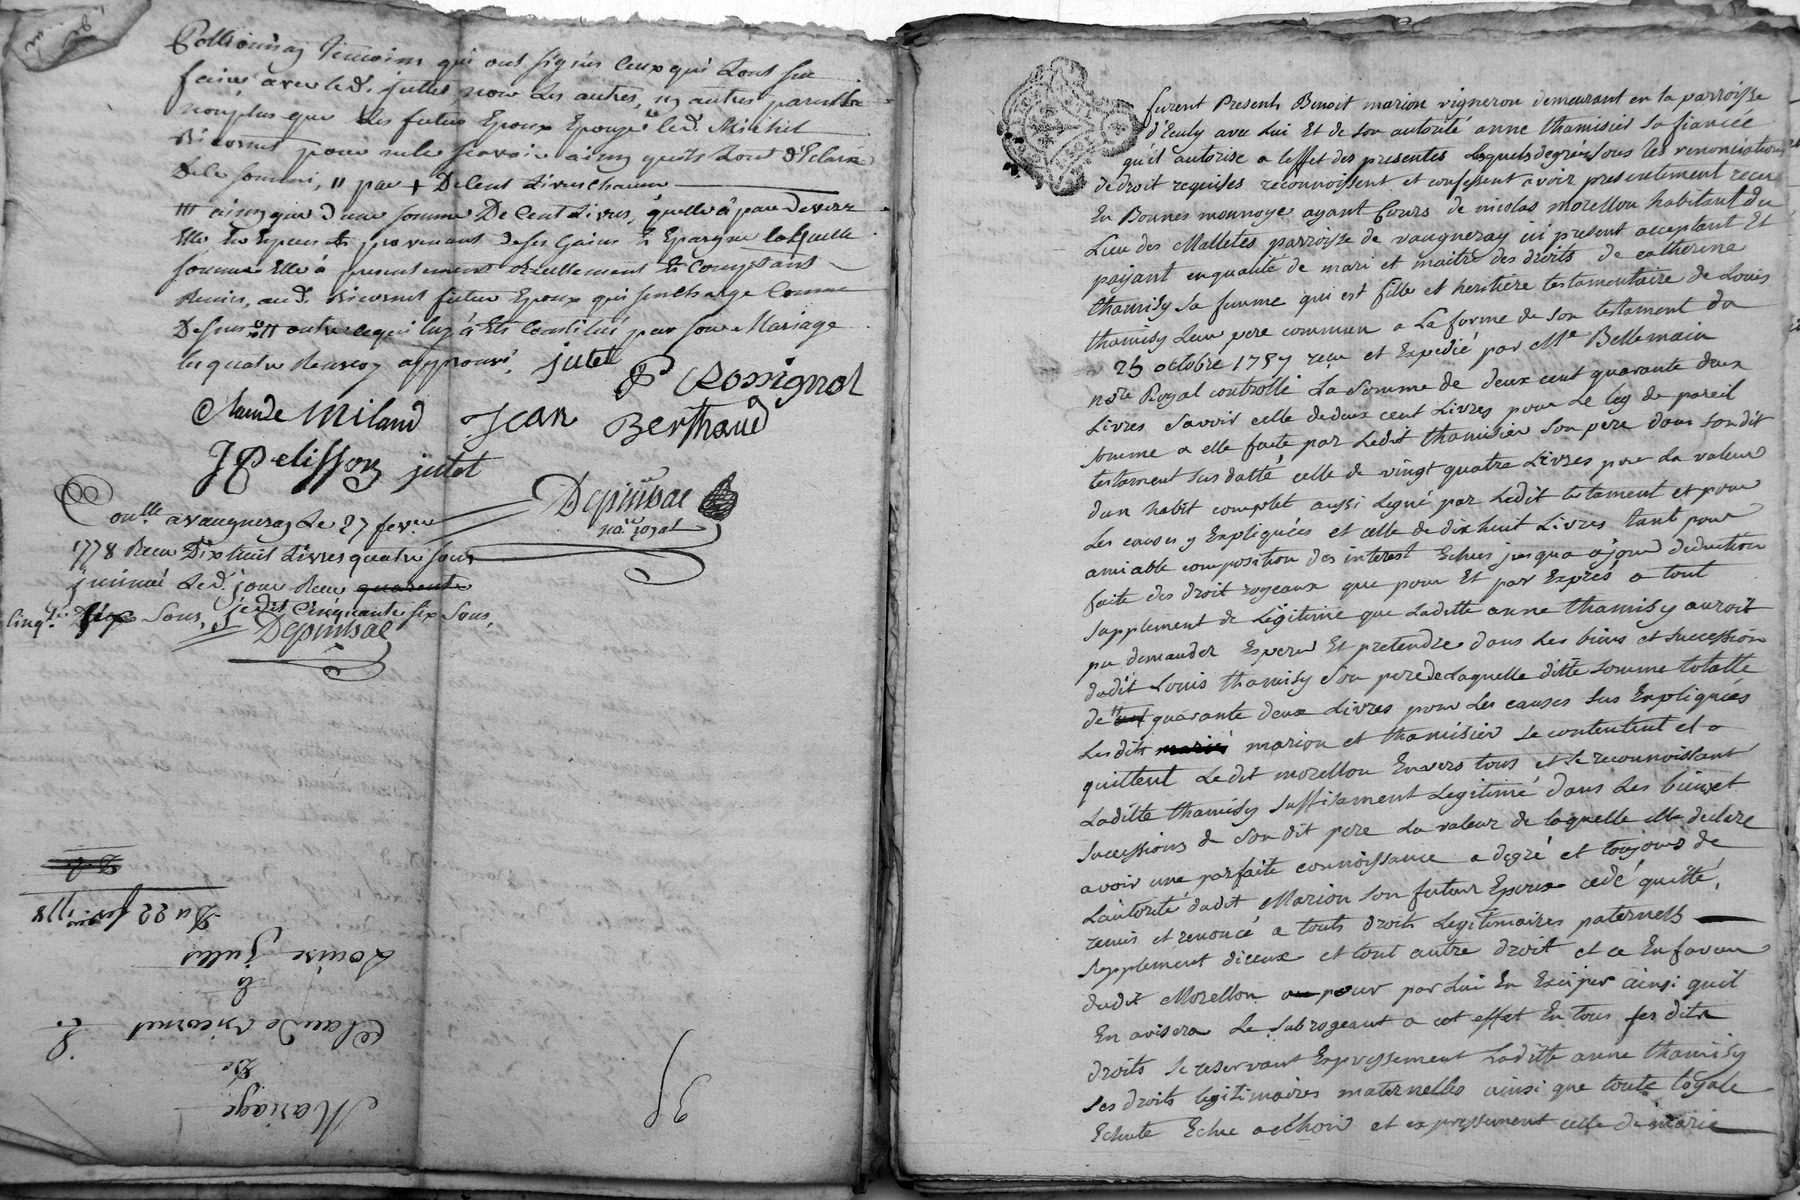 Pollionnay temoins qui ont signés ceux qui l'ont sçu
faire avec led. juttet pour les autres, ny autres parents
non plus que les futurs Epoux Epouze led. Michel
Bicornet pour ne le sçavoir ainsy qu'ils l'ont déclaré
De le sommé, 11 par + De Cent Livres chacun
111 ainsy que d'une somme De Cent Livres, quelle à pardevers
Elle En Especes provenant de ses Gains & Epargne laquelle
somme Elle à presentement réellement Et Comptant
Remis, aud. Bicornet futur Epoux qui s'en charge Comme
Dessus 11 outre ce qui luy à Eté Constitué par son Mariage
les quatre Renvoy approuvé, jutet
P Rossignol
Claude Miland Jean Berthaud
J Pelisson jutet
Depinsac
No.re royal
Con.lle a vaugneray Le 27 fevrier
1778 Reçu Dix huit Livres quatre sous
jnsinué Led. jour Reçu quarente
Cinq.te Six Sous, je dis Cinquante six Sous,
Depinsac
Mariage
De
Claude Bicornet
&
Louise Juttet
Du 22 fev.er 1778
furent Presents Benoit marion vigneron demeurant en la parroisse
d'Ecully avec Lui Et de son autorité anne thamisier sa fiancée
qu'il autorise a l'effet des presentes Lesquels degrés sous les renonciations
de droit requises reconnoissent et confessent avoir presentement recu
En Bonnes monnoye ayant Cours de nicolas morellon habitant du
Lieu des Malletes parroisse de vaugneray ici present acceptant Et
payant en qualité de mari et maitre des droits de catherine
thamisy sa femme qui est fille et heritiere testamentaire de Louis
thamisy Leur pere commun a La forme de son testament du
25 octobre 1757 reçu et Expedié par Me Bellemain
nore Royal controllé La Somme de deux cent quarante deux
Livres Savoir celle de deux cent Livres pour Le leg de pareil
somme a elle faite par Ledit thamisier Son pere dans son dit
testament Sus datté celle de vingt quatre Livres pour La valeur
d'un habit complet aussi Legué par Ledit testament et pour
Les causes y Expliquées et celle de dix huit Livres tant pour
amiable composition des interest Echus jusqua ajourd deduction
faite des droit royeaux que pour Et par Exprés a tout
supplement de Légitime que Laditte anne thamisy auroit
pu demander Esperer Et pretendre dans Les biens et succession
dudit Louis thamisy Son pere de Laquelle ditte somme totalle
de quarante deux Livres pour Les causes sus Expliquées
Lesdits marié marion et thamisier se contentent et a
quittent Ledit morellon Envers tous et se reconnoissant
Laditte thamisy suffisament Legitimé dans Les biens et
successions de Son dit pere La valeur de laquelle elle declare
avoir une parfaite connoissance a degré et toujours de
L'autorité dudit Marion son futur Epoux cedé quitté,
remis et renoncé a touts droits Legitimaires paternels
supplement diceux et tout autre droit et ce En faveur
dudit Morellon pour par Lui En Exciper ainsi quil
En avisera Le subrogeant a cet effet En tous ses dits
droits se reservant Expressement Laditte anne thamisy
ses droits legitimaires maternelles ainsi que toute Loyale
Echute Echue a echoir et expressement celle de marie